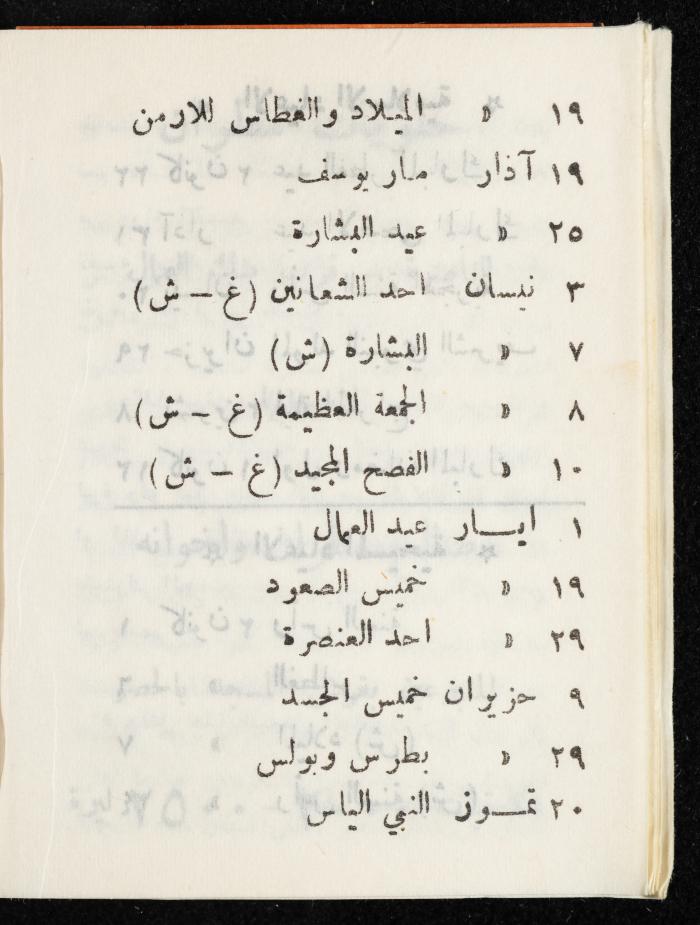 ١٩ » الميلاد والغطاس للارمن
١٩ آذار مار يوسف
٢٥ » عيد البشارة
٣ نيسان احد الشعانين (غ - ش)
٧ » البشارة (ش)
٨ » الجمعة العظيمة (غ - ش)
١٠ » الفصح المجيد (غ - ش)
١ ايـار عيد العمال
١٩ » خميس الصعود
٢٩ » احد العنصرة
٩ حزيران خميس الجسد
٢٩ » بطرس وبولس
٢٠ تمـوز النبي الياس